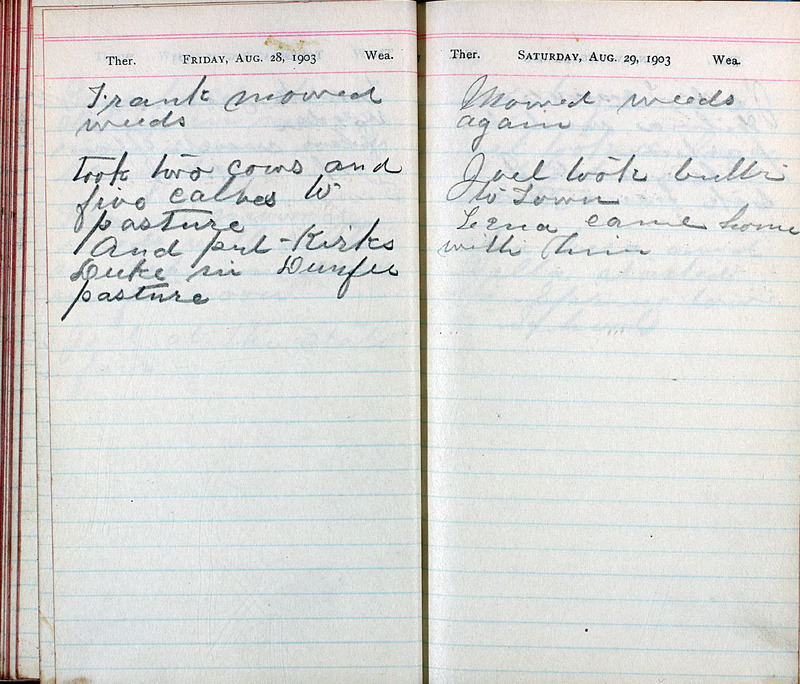 Ther. FRIDAY, AUG. 28, 1903 Wea.
Frank mowed
weeds
took two cows and
five calves to
pasture
And put Kirks
Duke in
pasture
Ther. SATURDAY, AUG. 29, 1903 Wea.
Mowed weeds
again
Joel took
to Town
Lena came home
with him